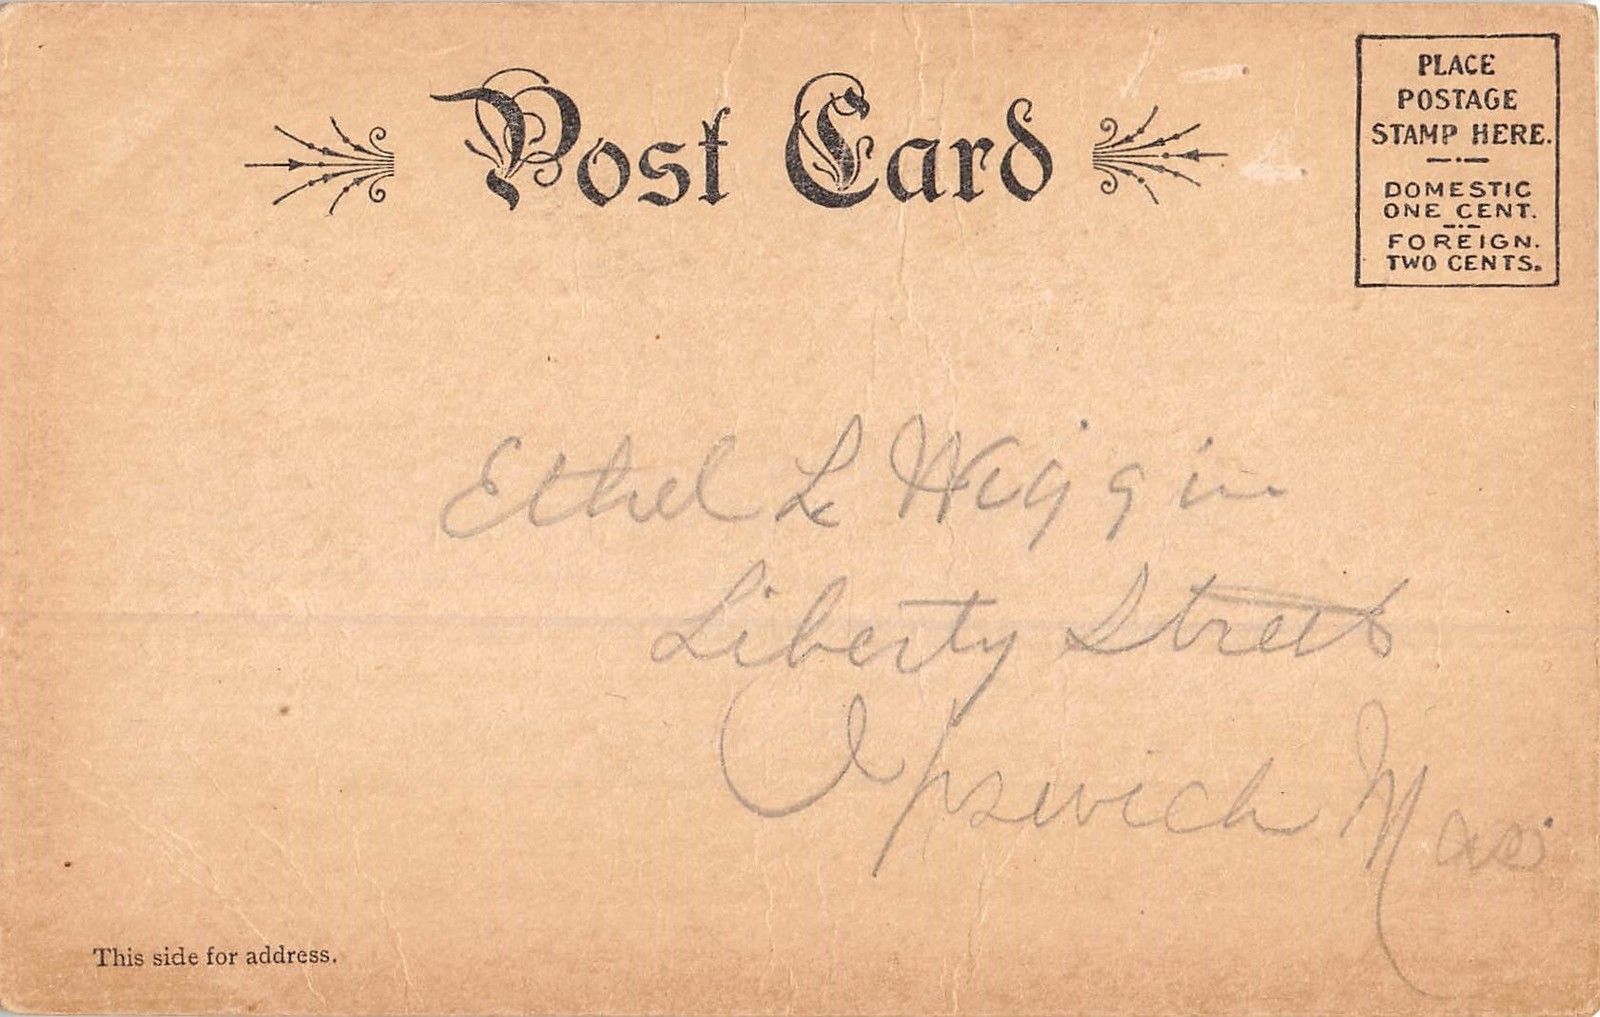 Post Card
PLACE
POSTAGE
STAMP HERE.
DOMESTIC
ONE CENT.
FOREIGN.
TWO CENTS.
Ethel L Wiggin
Liberty Street
Ipswich Mass
This side for address.